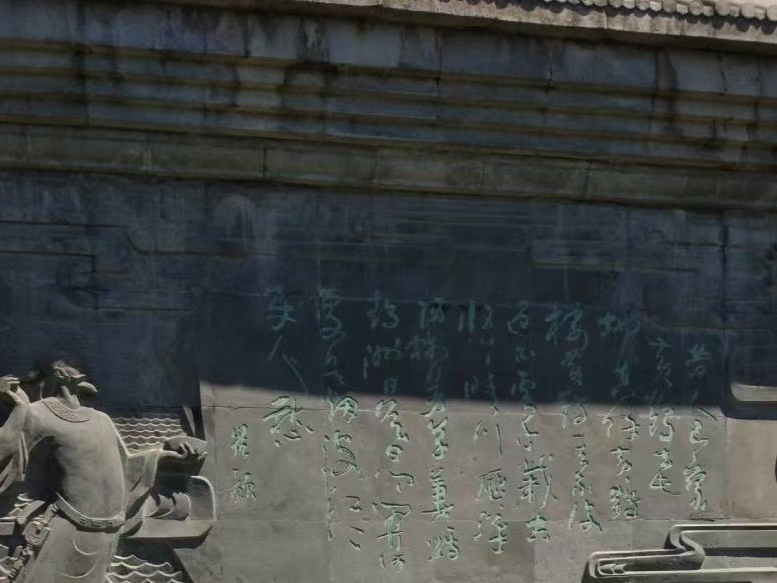 昔人已乘
黄鹤去
此地空餘黄鹤
楼黄鹤一去不復
返白雲千載空
悠悠晴川歷歷
漢陽樹芳草萋萋鹦
鹉洲日暮鄉關何
處是煙波江上
使人愁
崔颢